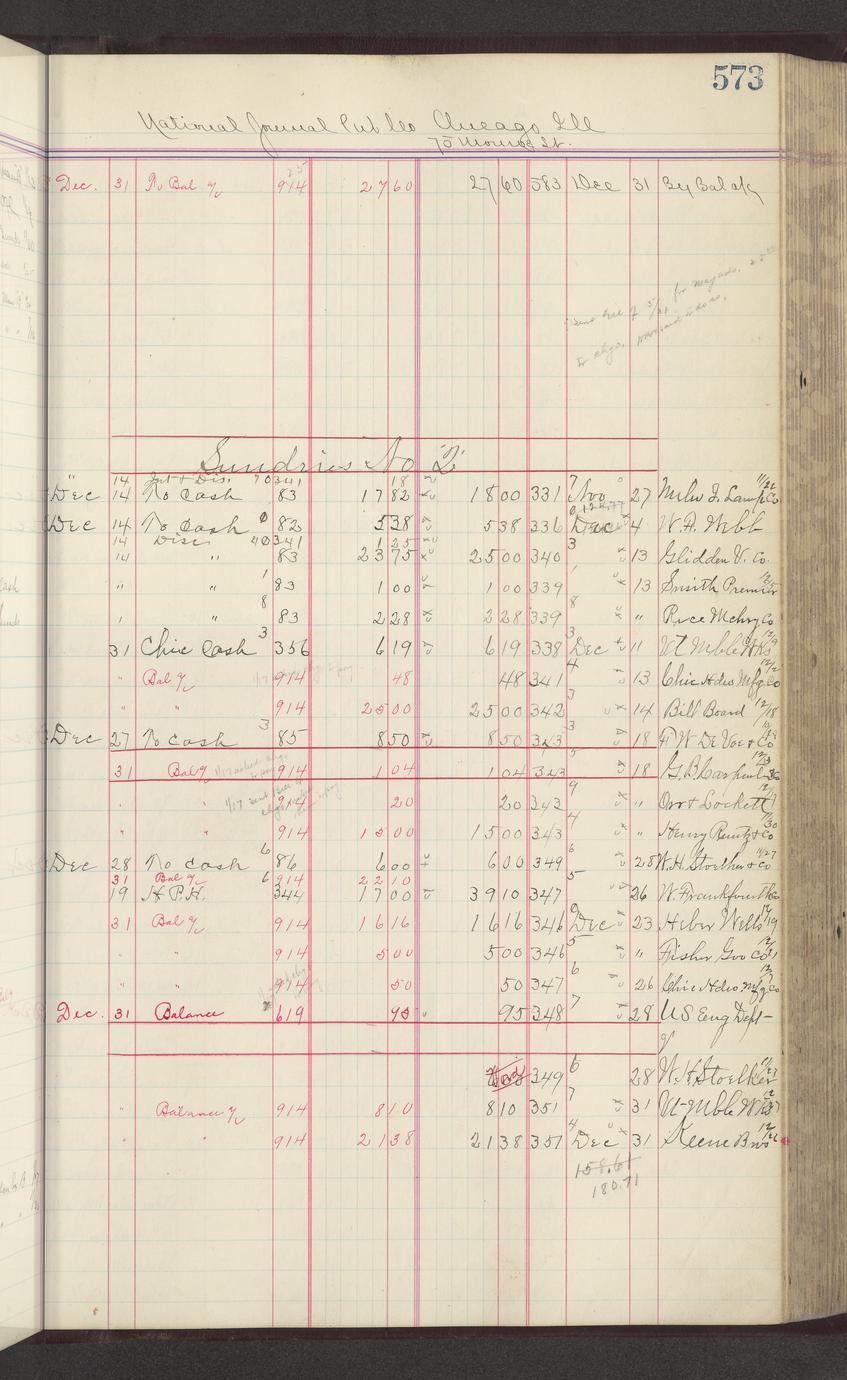 573
National Journal Pub Co Chicago Ill
70 Monroe St.
Dec. 31 To Bal % 914 27 60 27 60 583 Dec 31 By Bal a/c
Sundries No "2"
" 14 Int & Dis. 70 341 18
Dec 14 To Cash 83 17 82 18 00 331 7 Nov 27 Milw J. Lamp Co 11/22
Dec 14 To Cash 82 5 38 5 38 336 Dec 4 W. A. Webb
14 Disc 40 341 1 25
14 " 83 23 75 25 00 340 3 13 Glidden V. Co.
" " 1 83 1 00 1 00 339 1 13 Smith Premier
" " 8 83 2 28 2 28 339 8 " Rice Mchry Co
31 Chic Cash 3 356 6 19 6 19 338 3 Dec 11 Vt Mble Wks 12/9
" Bal % 914 48 48 341 4 13 Chic Hdw Mfg Co
" " 914 25 00 25 00 342 3 14 Bill Board 12/18
Dec 27 To Cash 3 85 8 50 8 50 343 3 18 F W De Voe & Co
31 Bal % 914 1 04 1 04 343 5 18 G. B. Carpenter & Co
" " 914 20 20 343 9 " Orr & Lockett
" " 914 15 00 15 00 343 4 " Henry & Co
Dec 28 To Cash 6 86 6 00 6 00 349 6 28 W. H. Stoelker & Co 11/27
31 Bal % 6 914 22 10
19 H. P. H. 344 17 00 39 10 347 5 26 W. Frankfurth Co
31 Bal % 914 16 16 16 16 346 9 Dec 23 Heber Wells 12/19
" " 914 5 00 5 00 346 5 " Fisher Gov Co
" " 914 50 50 347 6 26 Chic Hdw Mfg Co
Dec. 31 Balance 619 95 95 348 7 28 U S Eng Dept -
349 6 28 W. H. Stoelker
" Balance % 914 8 10 8 10 351 7 31 Vt Mble Wks
" " 914 21 38 21 38 351 4 Dec 31 Keene Bros
158.61
180.71